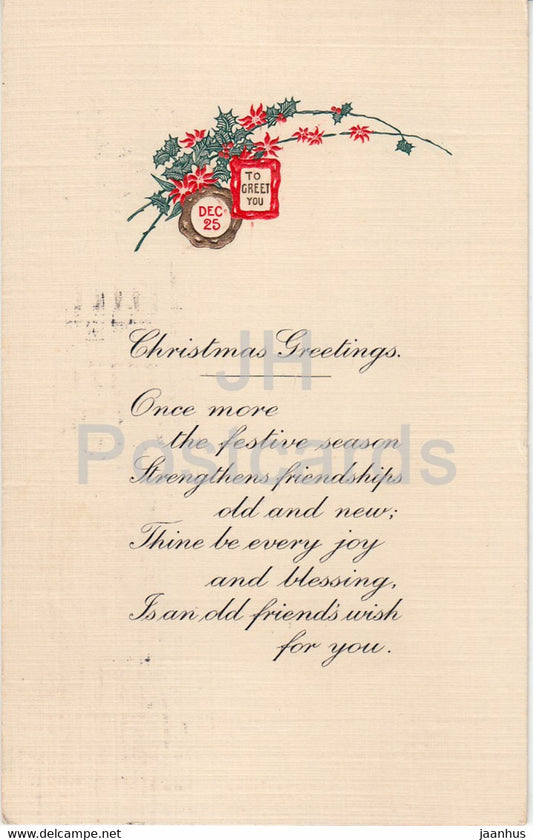 TO
GREET
YOU
DEC
25
Christmas Greetings.
Once more
the festive season
Strengthens friendships
old and new;
Thine be every joy
and blessing,
Is an old friend's wish
for you.
JH
Postcards
www.delcampe.net
jaanhus